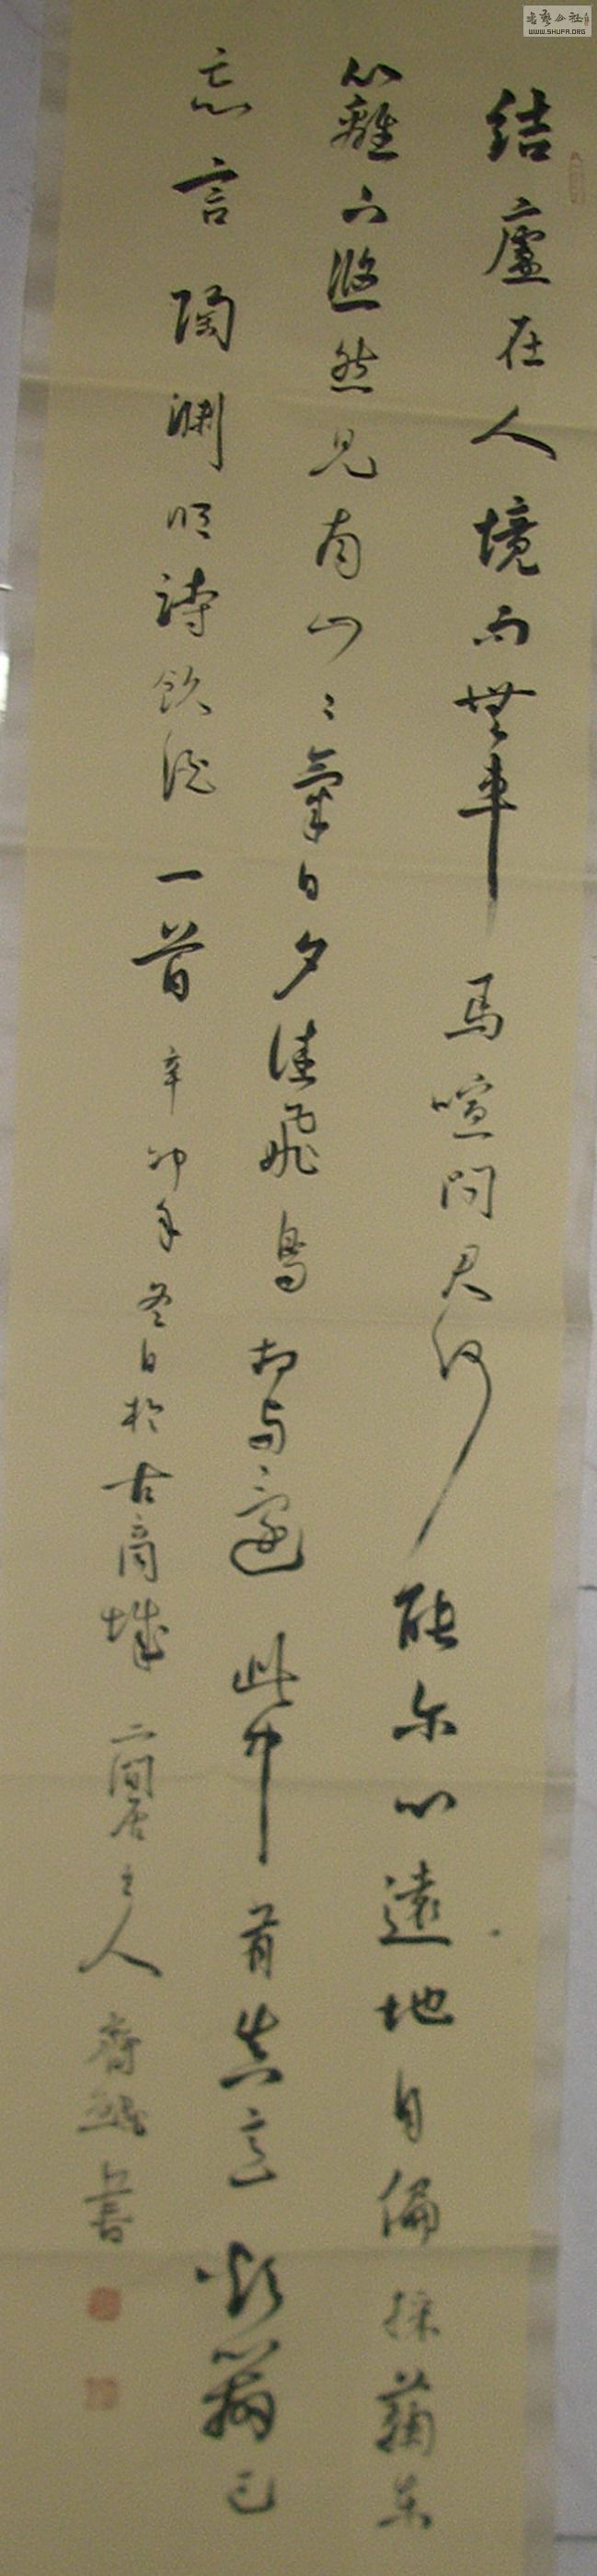 结庐在人境而無車馬喧問君何能尔心遠地自偏採菊东
籬下悠然見南山山氣日夕佳飛鳥相与還此中有真意欲辯已
忘言陶渊明詩飲酒一首辛卯年冬日於古商城二间居主人齊書
書藝公社
WWW.SHUFA.ORG